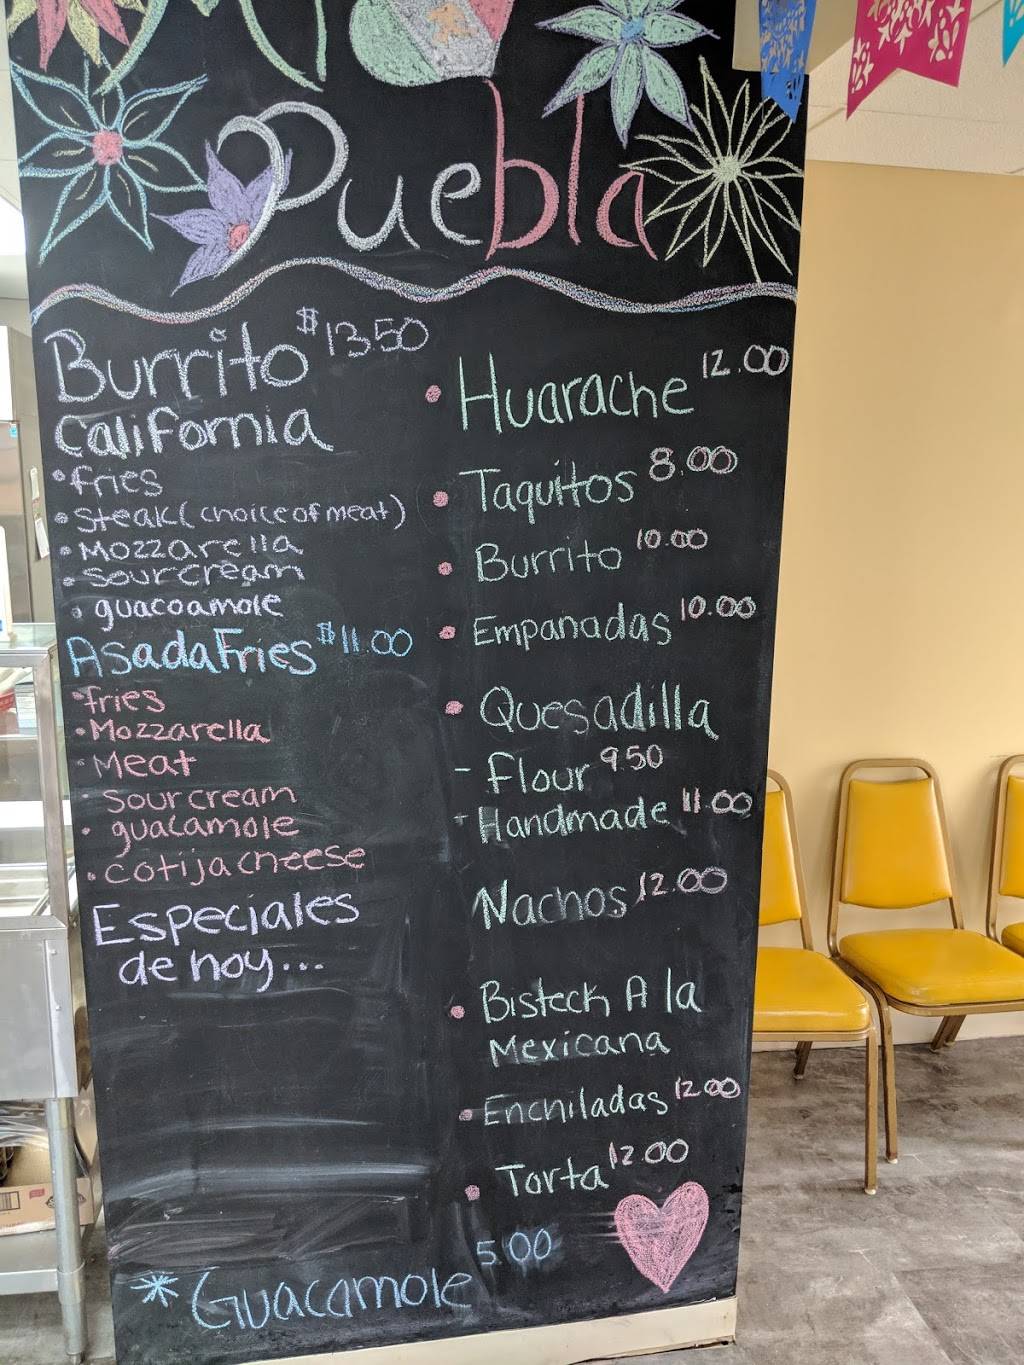 Puebla
Burrito $13.50
California
•fries
•Steak (choice of meat)
•Mozzarella
•sour cream
•guacoamole
Asada Fries $11.00
•fries
•Mozzarella
•Meat
sour cream
•guacamole
•cotija cheese
Especiales
de hoy...
•Huarache 12.00
•Taquitos 8.00
•Burrito 10.00
•Empanadas 10.00
•Quesadilla
- flour 9.50
- Handmade 11.00
Nachos 12.00
•Bisteck A la
Mexicana
•Enchiladas 12.00
•Torta 12.00
*Guacamole 5.00